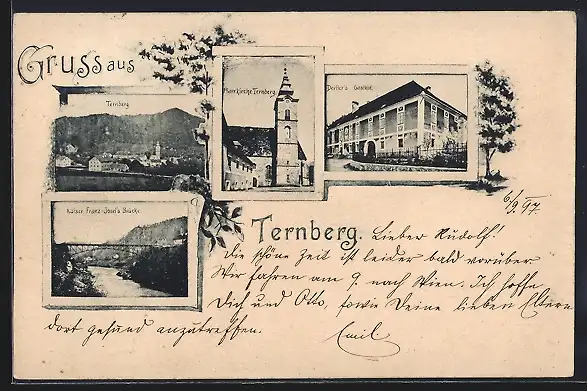 Gruss aus
Ternberg
Pfarrkirche Ternberg
Derfler's Gasthof.
Kaiser Franz Josef's Brücke
6/9. 97.
Ternberg. Lieber Rudolf!
Die schöne Zeit ist leider bald vorüber
Wir fahren am 9. nach Wien. Ich hoffe
Dich und Otto, sowie Deine lieben Eltern
dort gesund anzutreffen.
Emil